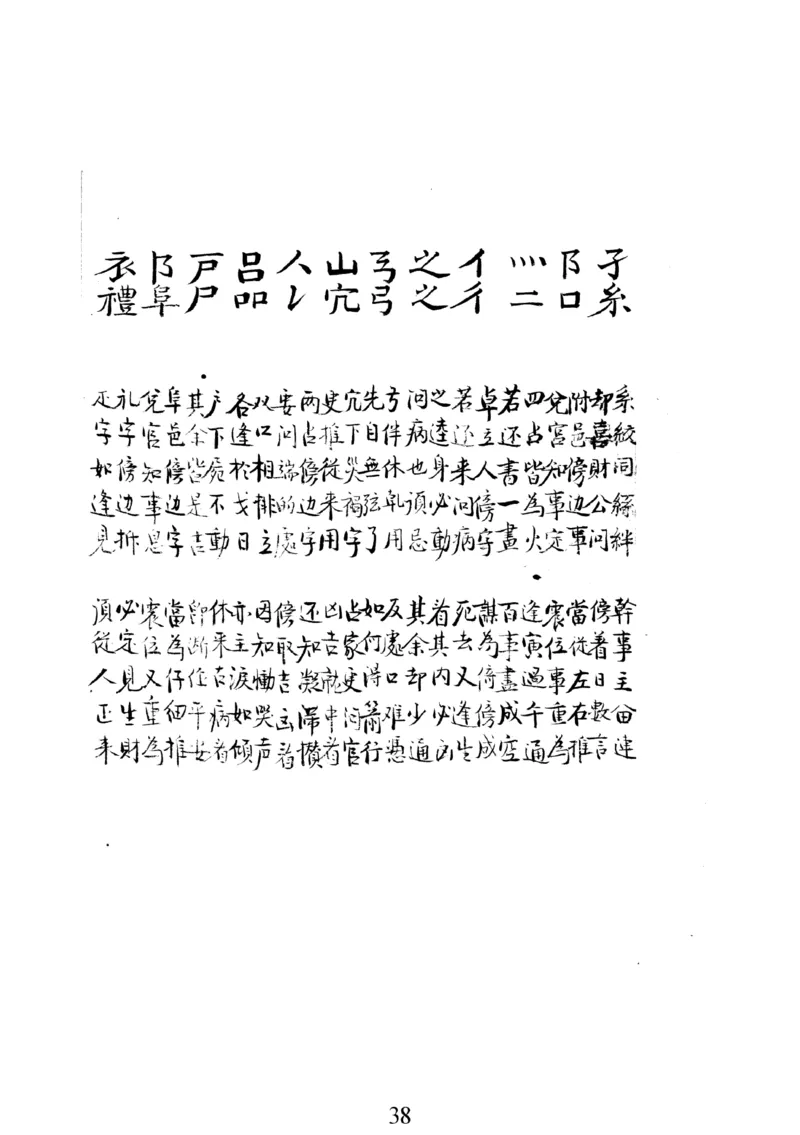 子糸
系絞同繇絆
幹事主由逹
却喜財公问
傍着日数言
阝口
附邑傍边事
當従左右推
兌宮知事定
震位事重為
灬二
四占皆為火
逢寅過千通
若还書一畫
百事盡成空
亻彳
卓立人傍字
謀為倚傍成
若还来问病
死去又逢生
之之
之逵身必動
其其内必凶
问病也頂忌
反余却少通
弓弓
弓伴休乹用
反處口难憑
先自無弦了
如何得蕭行
山宂
宂下哭禍字
占家吏问官
史推従来用
凶吉就中着
人乚
两占傍边字
还知凝滞攅
妄问端的處
傍取吉凶着
呂品
双口相排立
因知慟哭声
各逢於戈日
亦主淚如傾
戸尸
户下屍不動
休来吉病着
其余皆是吉
即断任平安
阝阜
阜邑傍边字
當為仔细推
兌官知事息
震位又重為
衣禮
礼字傍边拆
必定見生財
正字如逢見
頂従人正来
38